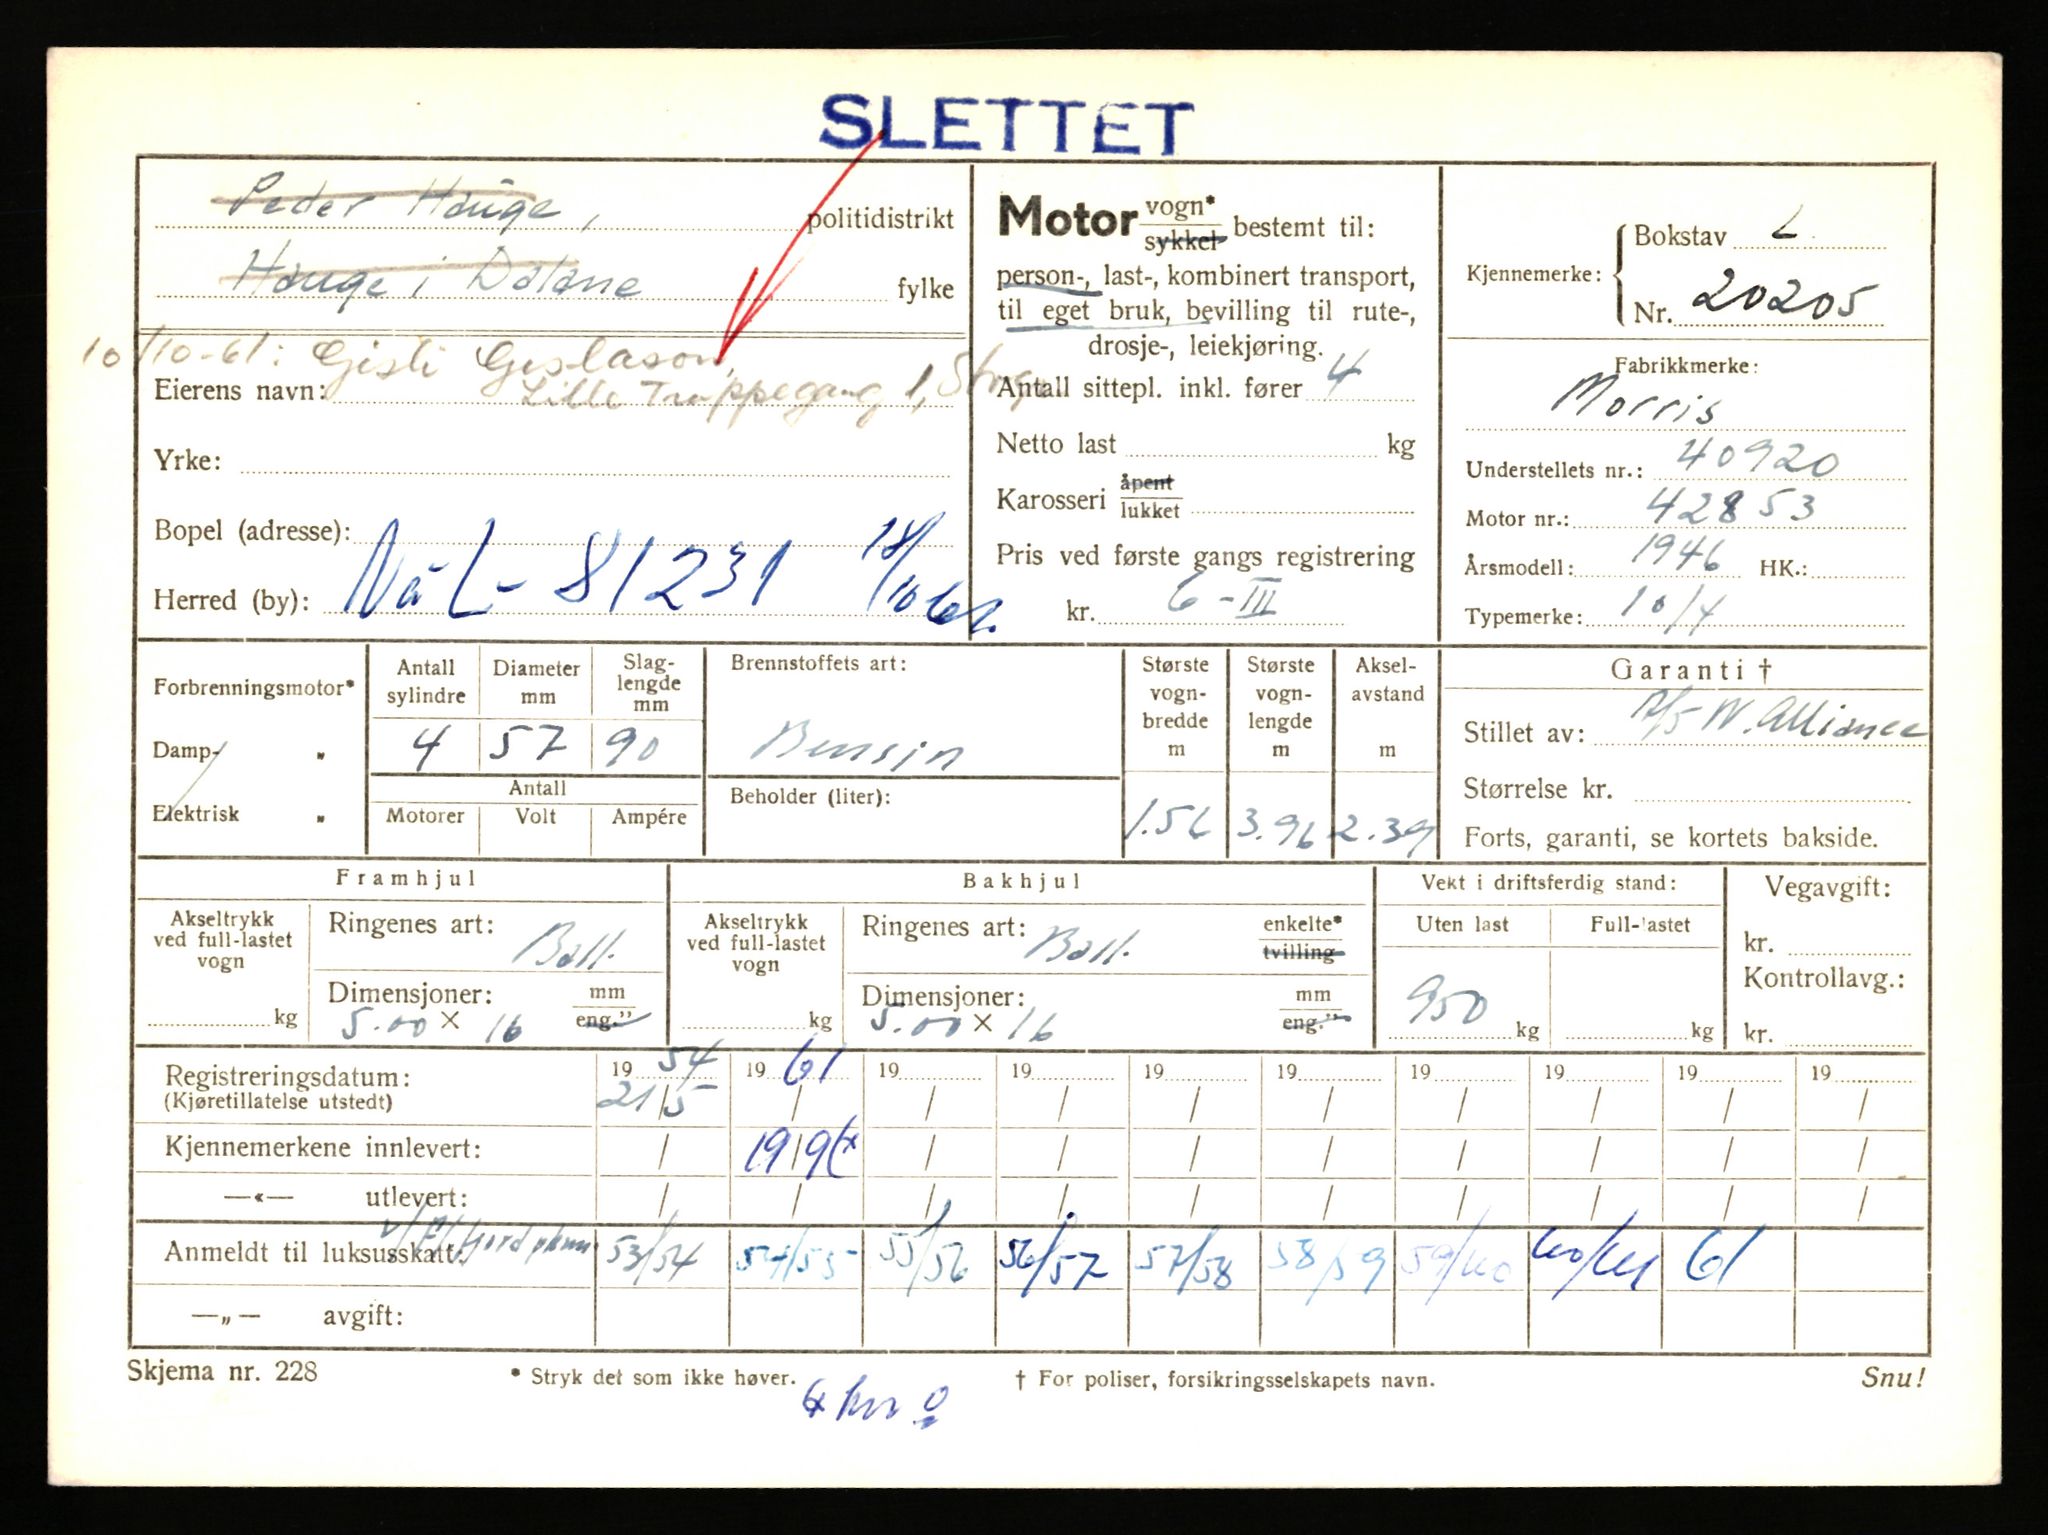 SLETTET
Peder Hauge,
politidistrikt
Hauge i Dalane
fylke
10/10-61: Gisli Gislason,
Eierens navn: Lille Trappegang 1,
Yrke:
Bopel (adresse):
Herred (by): Nå L- 81231 18/10 61.
Motor vogn* sykkel bestemt til:
person-, last-, kombinert transport,
til eget bruk, bevilling til rute-,
drosje-, leiekjøring.
Antall sittepl. inkl. fører 4
Netto last kg
Karosseri åpent lukket
Pris ved første gangs registrering
kr. 6-III
Kjennemerke: Bokstav L
Nr. 20205
Fabrikkmerke:
Morris
Understellets nr.: 40920
Motor nr.: 42853
Årsmodell: 1946 HK.:
Typemerke: 10/4
Forbrenningsmotor*
Damp- „
Elektrisk „
Antall sylindre
4
Diameter mm
57
Slag-
lengde
mm
90
Antall
Motorer Volt Ampére
Brennstoffets art:
Bensin
Beholder (liter):
Største
vogn-
bredde
m
1.56
Største
vogn-
lengde
m
3.96
Aksel-
avstand
m
2.39
Garanti †
Stillet av: A/S N. Alliance
Størrelse kr.
Forts, garanti, se kortets bakside.
Framhjul
Akseltrykk
ved full-lastet
vogn
kg
Ringenes art: Ball.
Dimensjoner: mm
5.00 × 16 eng."
Bakhjul
Akseltrykk
ved full-lastet
vogn
kg
Ringenes art: Ball. enkelte*
tvilling
Dimensjoner: mm
5.00 × 16 eng."
Vekt i driftsferdig stand:
Uten last Full-lastet
950 kg kg
Vegavgift:
kr.
Kontrollavg.:
kr.
Registreringsdatum: 19 54 19 61 19 19 19 19 19 19 19 19
(Kjøretillatelse utstedt) 21/5 / / / / / / / / /
Kjennemerkene innlevert: / 19/9 / / / / / / / /
—«— utlevert: / / / / / / / / / /
Anmeldt til luksusskatt: 53/54 54/55 55/56 56/57 57/58 58/59 59/60 60/61 61
—„— avgift:
Skjema nr. 228 * Stryk det som ikke høver. † For poliser, forsikringsselskapets navn. Snu!